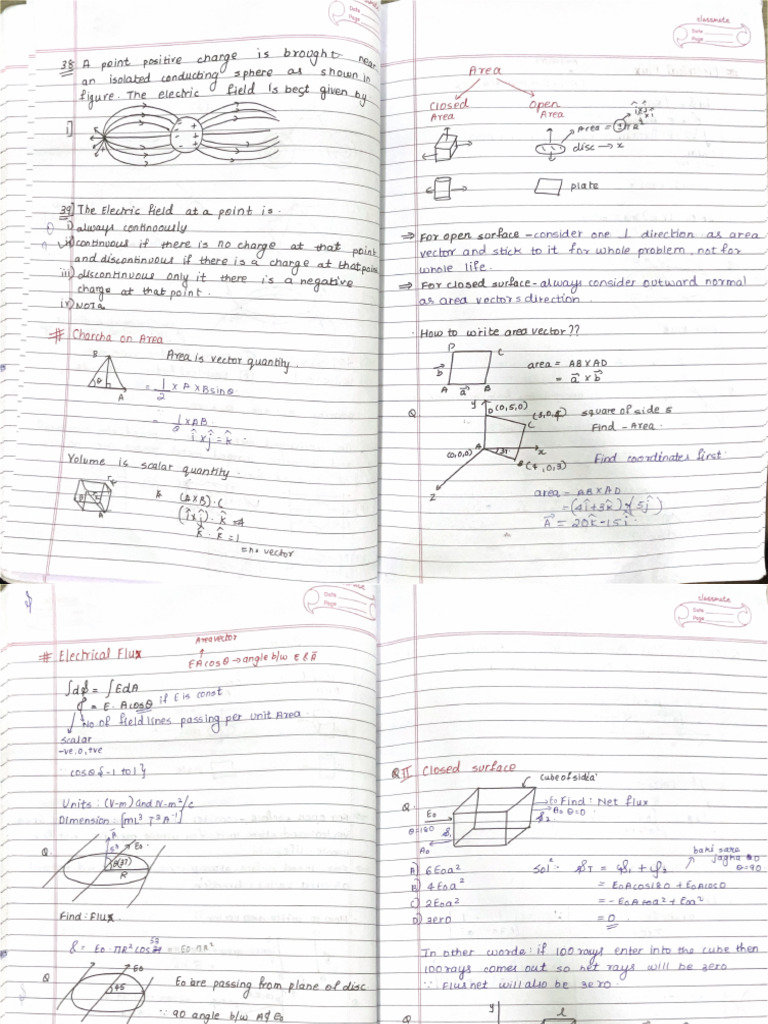 38 A point positive charge is brought near
an isolated conducting sphere as shown in
figure. The electric field is best given by
i]
39] The Electric field at a point is.
i) always continuously
ii) continuous if there is no charge at that point
and discontinuous if there is a charge at that point
iii) discontinuous only it there is a negative
charge at that point.
iv) NOTA
# Charcha on Area
Area is vector quantity.
B
θ
A
= 1/2 × A × B sinθ
î × ĵ = k̂
Volume is scalar quantity.
(A×B).C
(î×ĵ).k̂
k̂.k̂ = 1
= no vector
classmate
Date
Page
Area
Closed Area
Open Area
Area =
disc → x
plate
⇒ For open surface - consider one ⊥ direction as area
vector and stick to it for whole problem, not for
whole life.
⇒ For closed surface - always consider outward normal
as area vectors direction
How to write area vector??
P C
b⃗
A a⃗ B
area = AB×AD
= a⃗ × b⃗
Q
y
D(0,5,0)
C
square of side 5
Find - Area.
(0,0,0) A
x
B(4,0,3)
z
Find coordinates first.
area = AB×AD
= (4î+3k̂)×(5ĵ)
A⃗ = 20k̂-15î
Date
Page
# Electrical Flux
Area vector
EA cosθ → angle b/w E & A⃗
∫dϕ = ∫EdA
ϕ = E.A cosθ if E is const
No. of field lines passing per unit Area.
scalar
-ve,0,+ve
cosθ {-1 to 1}
Units: (V-m) and N-m²/c
Dimension: [ML³T⁻³A⁻¹]
Q.
A⃗
E₀
θ(37)
R
Find: Flux
= E₀.πR² cos53
Q
E₀
45
E₀ are passing from plane of disc
∵ 90 angle b/w A & E₀
classmate
Date
Page
Q II Closed surface
cube of side 'a'
Q.
E₀
θ=180
A₀
ϕ₁
E₀
A₀ θ=0
ϕ₂
Find: Net flux
baki sare
jagha
θ=90
A) 6E₀a²
B) 4E₀a²
C) 2E₀a²
D) zero
Solⁿ ϕT = ϕ₁ + ϕ₂
= E₀A cos180 + E₀A cos0
∴ = 0
In other words: if 100 rays enter into the cube then
100 rays comes out so net rays will be zero
∵ Flux net will also be zero.
Q
y
l